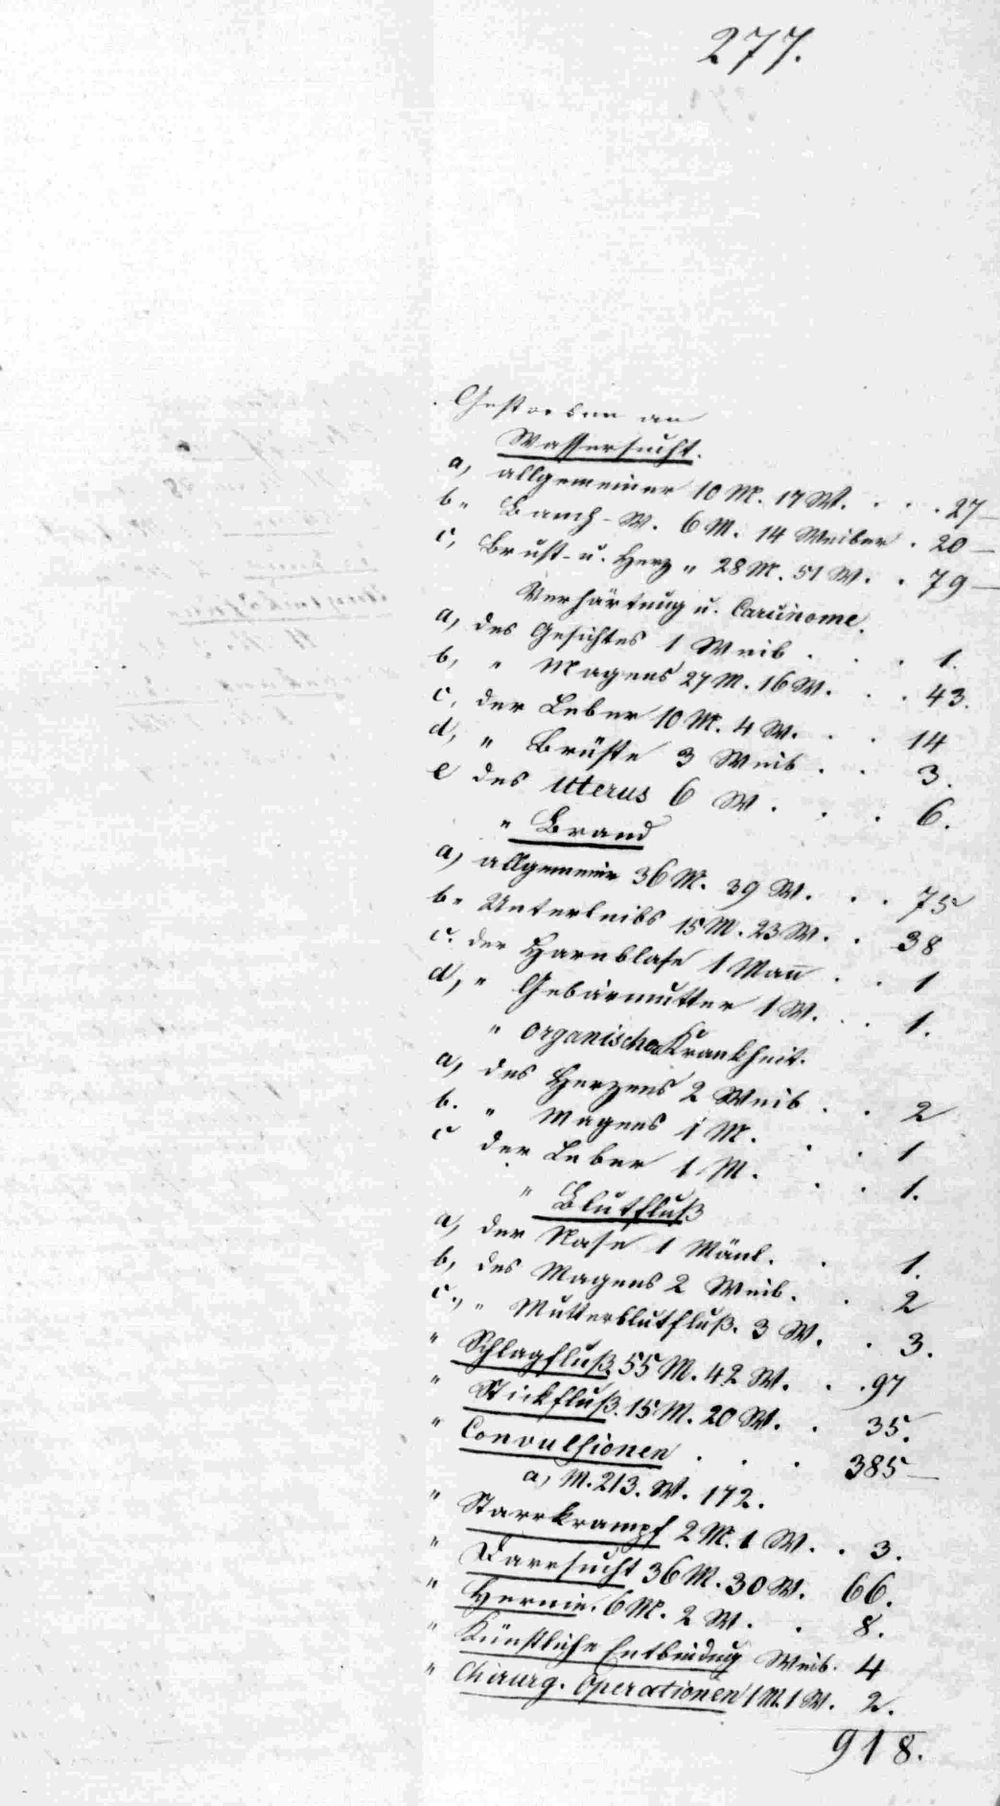 277.
Gestorben an
Wassersucht.
a, allgemeiner 10 M. 17 W. . . . 27 —
b " Bauch-W. 6 M. 14 Weiber . 20 —
c, Brust- u. Herz " 28 M. 51 W. . . 79 —
Verhärtung u. Carcinome.
a, des Gesichtes 1 Weib . . . 1.
b, " Magens 27 M. 16 W. . . . 43.
c, der Leber 10 M. 4 W. . . . 14
d, " Brüste 3 Weib . . 3.
e des Utterus 6 W . . . 6.
" Brand
a, allgemeine 36 M. 39 W. . . . 75
b " Unterleibs 15 M. 23 W. . . 38
c. der Harnblase 1 Mañ . . 1
d, " Gebärmutter 1 W. . . 1.
" organische Krankheit.
a, des Herzens 2 Weib . . 2
b. " Magens 1 M. . . 1
c der Leber 1 M. . . 1.
" Blutfluß
a, der Nase 1 Mänl. . . 1.
b, des Magens 2 Weib. . . 2
c., " Mutterblutfluß. 3 W. . . 3.
" Schlagfluß 55 M. 42 W. . . . 97
" Stickfluß. 15 M. 20 W. . . 35.
" Convulsionen . . . 385 —
a, M. 213. W. 172.
" Starrkrampf 2 M. 1 W. . . 3.
" Darrsucht 36 M. 30 W. 66.
" Hernie. 6 M. 2 W. . . 8.
" Künstliche Entbindung Weib. 4
" Chirurg. Operationen 1 M. 1 W. 2.
918.